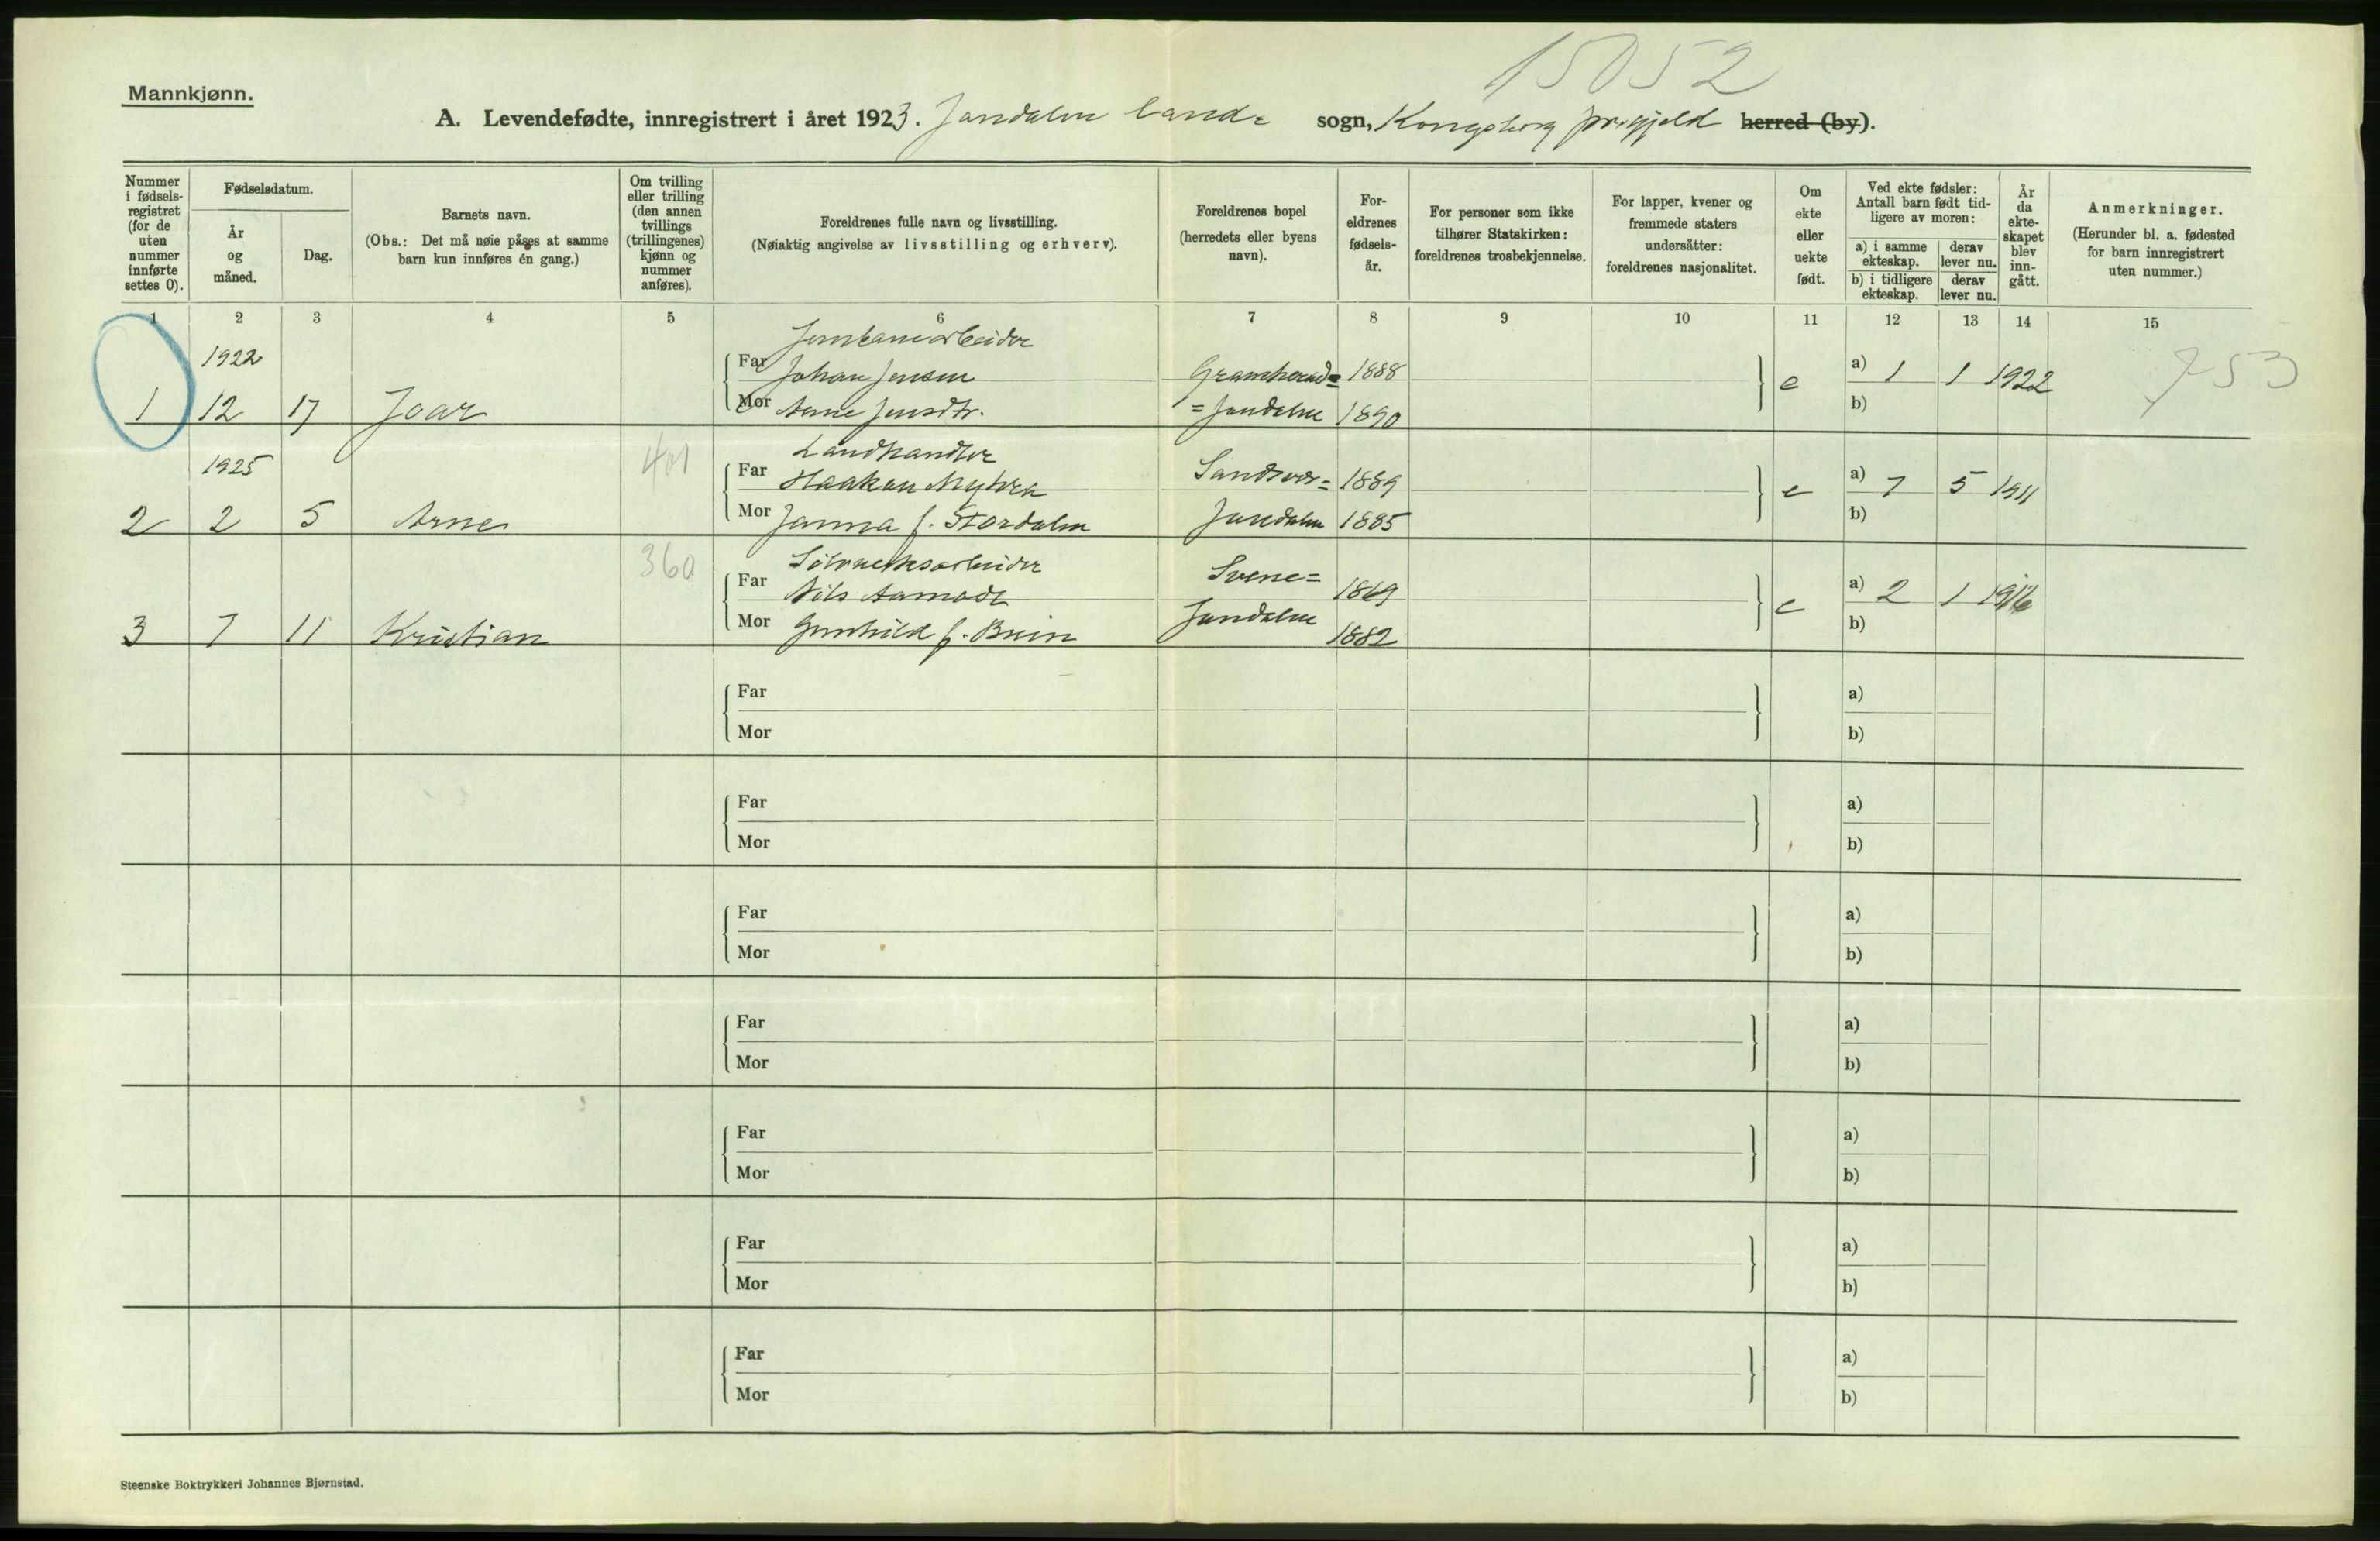 15052
Mannkjønn.
A. Levendefødte, innregistrert i året 1923. Jondalen land= sogn, Kongsberg prgjeld herred (by).
Nummer i fødselsregistret (for de uten nummer innførte settes 0).
Fødselsdatum.
År og måned.
Dag.
Barnets navn.
(Obs.: Det må nøie påses at samme barn kun innføres én gang.)
Om tvilling eller trilling (den annen tvillings (trillingenes) kjønn og nummer anføres).
Foreldrenes fulle navn og livsstilling.
(Nøiaktig angivelse av livsstilling og erhverv).
Foreldrenes bopel (herredets eller byens navn).
Foreldrenes fødselsår.
For personer som ikke tilhører Statskirken: foreldrenes trosbekjennelse.
For lapper, kvener og fremmede staters undersåtter: foreldrenes nasjonalitet.
Om ekte eller uekte født.
Ved ekte fødsler: Antall barn født tidligere av moren:
a) i samme ekteskap. derav lever nu.
b) i tidligere ekteskap. derav lever nu.
År da ekteskapet blev inngått.
Anmerkninger.
(Herunder bl. a. fødested for barn innregistrert uten nummer.)
1 2 3 4 5 6 7 8 9 10 11 12 13 14 15
Jernbanearbeider
1922 Far Johan Jensen Gramherad= 1888 e a) 1 1 1922 753
1 12 17 Joar Mor Anne Jensdtr. =Jondalen 1890 b)
Landhandler
1923 401 Far Haakon Myhra Sandsvær= 1889 e a) 7 5 1911
2 2 5 Arne Mor Janna f. Stordalen Jondalen 1885 b)
Sølvverksarbeider
360 Far Nils Aamodt Svene= 1869 e a) 2 1 1916
3 7 11 Kristian Mor Gunhild f. Bruin Jondalen 1882 b)
Far a)
Mor b)
Far a)
Mor b)
Far a)
Mor b)
Far a)
Mor b)
Far a)
Mor b)
Far a)
Mor b)
Far a)
Mor b)
Steenske Boktrykkeri Johannes Bjørnstad.